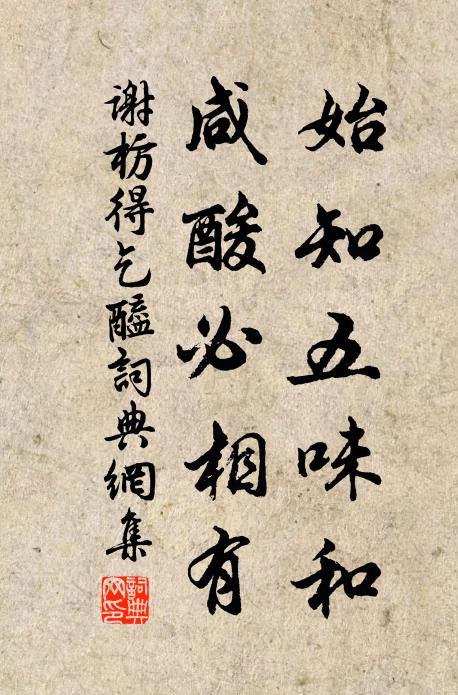 始知五味和
咸酸必相有
谢枋得乞醯詞典網集
詞典
网印